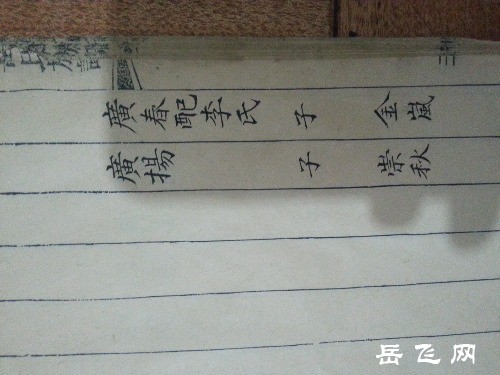 廣春配李氏 子 金嵐
廣揚 子 崇秋
岳飞网